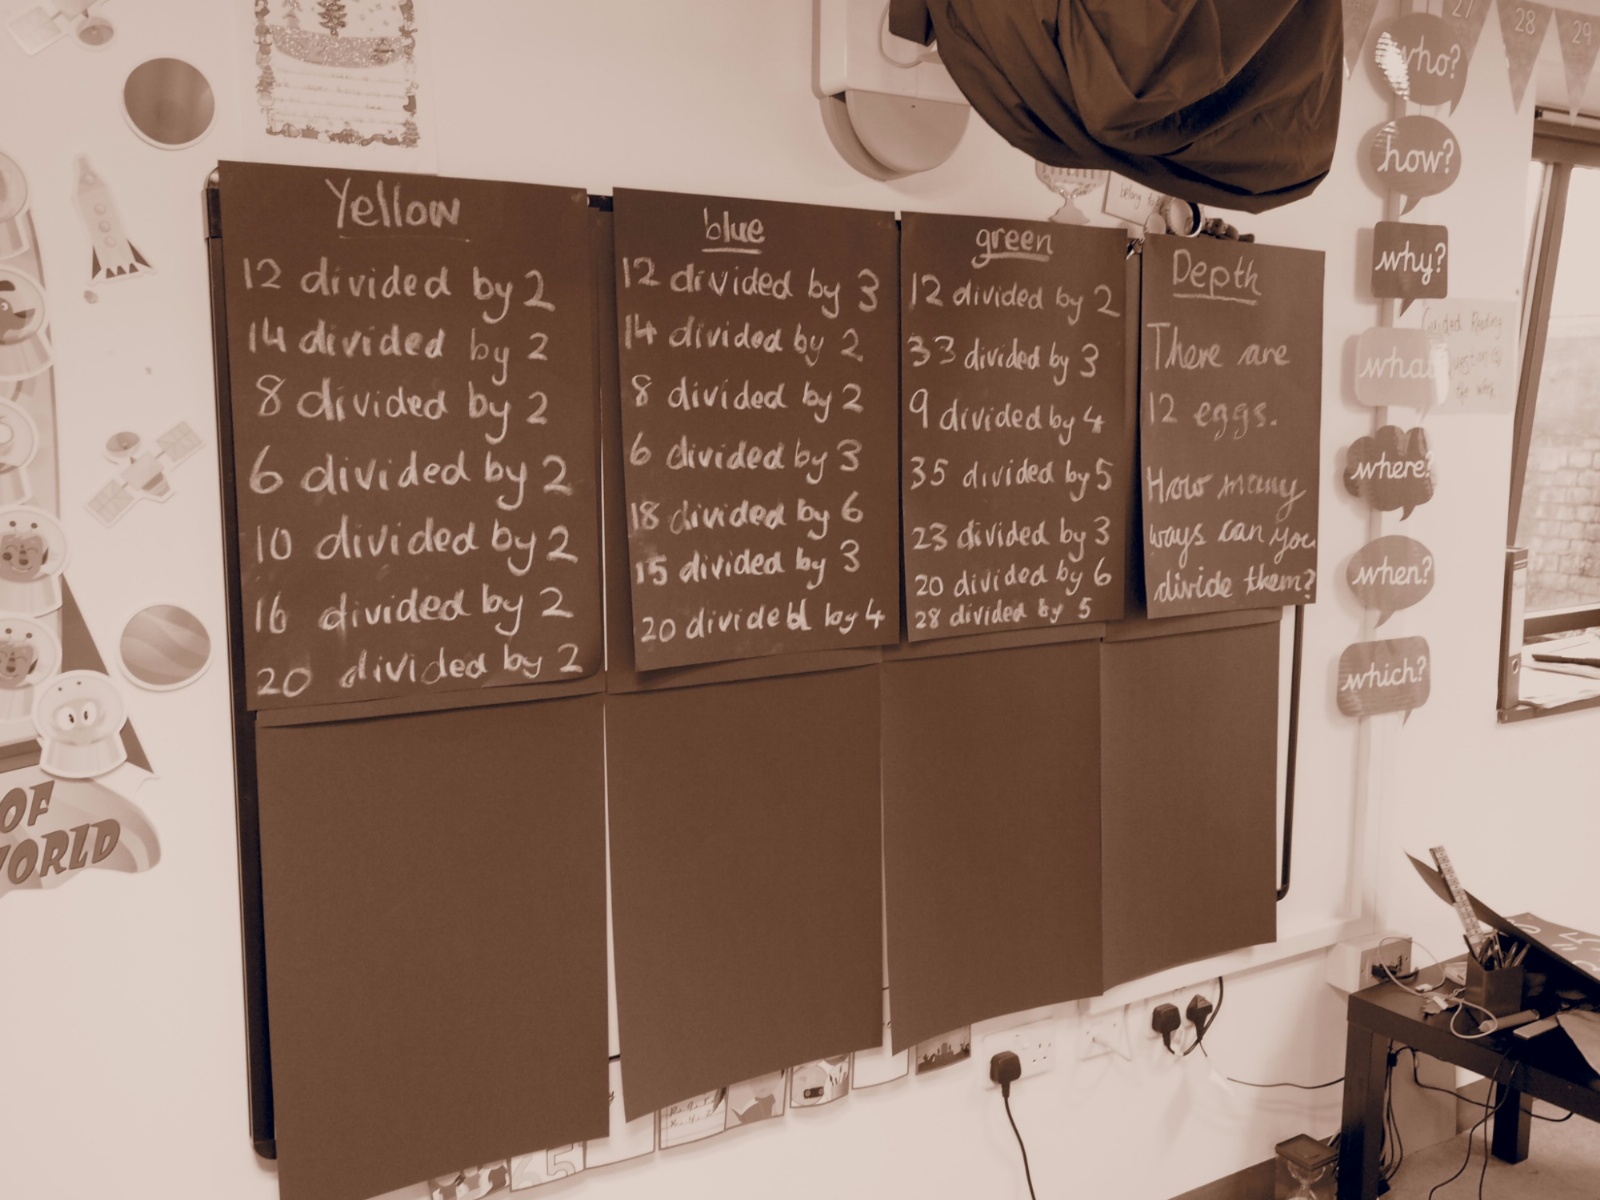 Yellow
12 divided by 2
14 divided by 2
8 divided by 2
6 divided by 2
10 divided by 2
16 divided by 2
20 divided by 2
blue
12 divided by 3
14 divided by 2
8 divided by 2
6 divided by 3
18 divided by 6
15 divided by 3
20 divided by 4
green
12 divided by 2
33 divided by 3
9 divided by 4
35 divided by 5
23 divided by 3
20 divided by 6
28 divided by 5
Depth
There are
12 eggs.
How many
ways can you
divide them?
27
28
29
who?
how?
why?
what
where?
when?
which?
Guided Reading
OF
WORLD